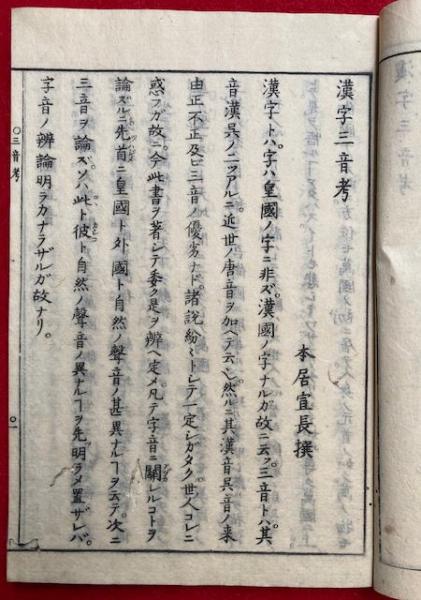 漢字三音考
本居宣長撰
漢字トハ字ハ皇國ノ字ニ非ズ漢國ノ字ナルガ故ニ云フ三音トハ其
音漢吳ノ二ツアルニ近世ノ唐音ヲ加ヘテ云也然ルニ其漢音吳音ノ來
由正不正及ビ三音ノ優劣ナド諸說紛々トシテ一定シガタク世人コレニ
惑フガ故ニ今此書ヲ著シテ委ク是ヲ辨ヘ定メ凡テ字音ニ關レルコトヲ
論ズルニ先首ニ皇國ト外國ト自然ノ聲音ノ甚異ナルヿヲ云テ次ニ
三音ヲ論ズソハ此ト彼ト自然ノ聲音ノ異ナルヿヲ先ヅ明ラメ置ザレバ
字音ノ辨論明ラカナラザルガ故ナリ。
〇三音考
〇一